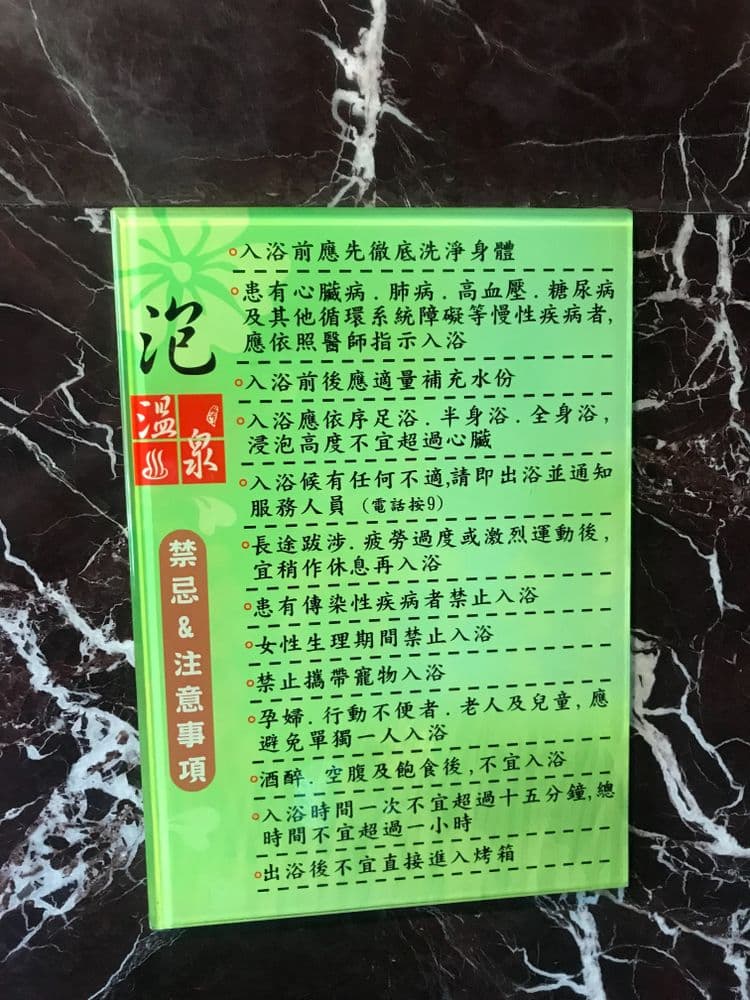 泡
溫
泉
禁忌&注意事項
入浴前應先徹底洗淨身體
患有心臟病.肺病.高血壓.糖尿病
及其他循環系統障礙等慢性疾病者,
應依照醫師指示入浴
入浴前後應適量補充水份
入浴應依序足浴.半身浴.全身浴,
浸泡高度不宜超過心臟
入浴候有任何不適,請即出浴並通知
服務人員 (電話按9)
長途跋涉.疲勞過度或激烈運動後,
宜稍作休息再入浴
患有傳染性疾病者禁止入浴
女性生理期間禁止入浴
禁止攜帶寵物入浴
孕婦.行動不便者.老人及兒童,應
避免單獨一人入浴
酒醉.空腹及飽食後,不宜入浴
入浴時間一次不宜超過十五分鐘,總
時間不宜超過一小時
出浴後不宜直接進入烤箱